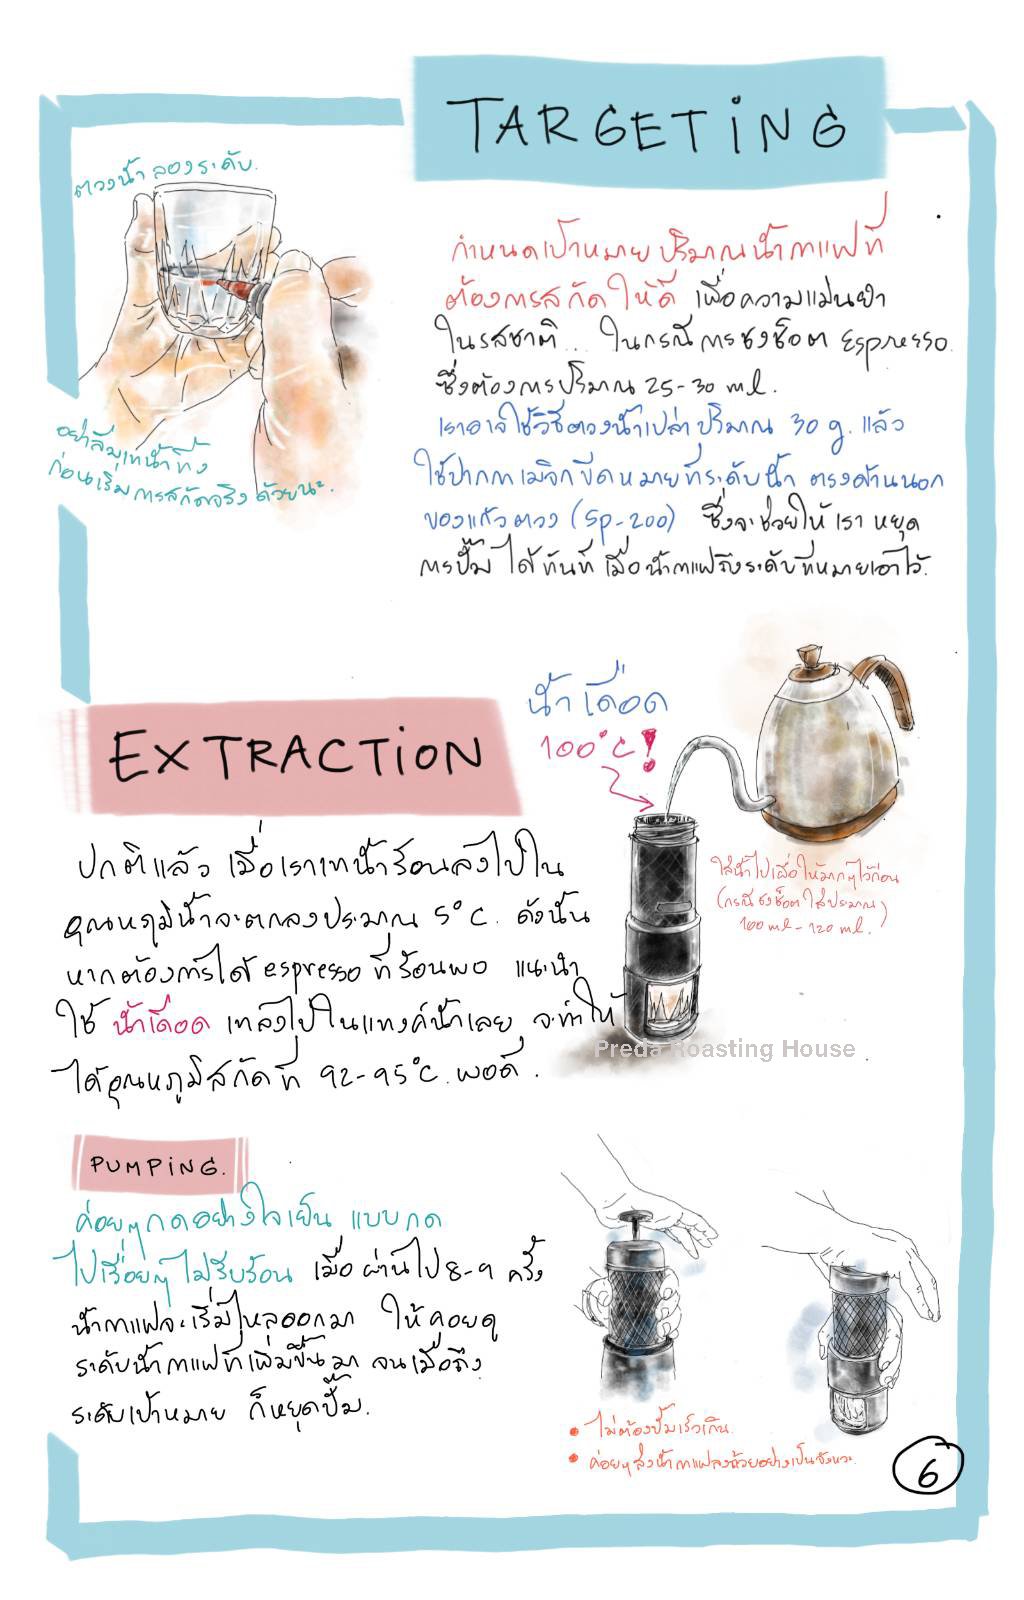 TARGETING
ตวงน้ำ ลองระดับ.
กำหนดเป้าหมาย ปริมาณน้ำกาแฟที่
ต้องการสกัดให้ดี เพื่อความแม่นยำ
ในรสชาติ... ในกรณีการชงช็อต Espresso.
ซึ่งต้องการปริมาณ 25-30 ml.
เราอาจใช้วิธีตวงน้ำเปล่าปริมาณ 30 g. แล้ว
ใช้ปากกาเมจิกขีดหมายที่ระดับน้ำ ตรงด้านนอก
ของแก้วตวง (Sp-200) ซึ่งจะช่วยให้เราหยุด
การปั๊มได้ทันที เมื่อน้ำกาแฟถึงระดับที่หมายเอาไว้.
อย่าลืมเทน้ำทิ้ง
ก่อนเริ่มการสกัดจริงด้วยนะ.
EXTRACTION
น้ำเดือด
100°C!
ปกติแล้ว เมื่อเราเทน้ำร้อนลงไปใน
อุณหภูมิน้ำจะตกลงประมาณ 5°C. ดังนั้น
หากต้องการได้ espresso ที่ร้อนพอ แนะนำ
ใช้ น้ำเดือด เทลงไปในแทงค์น้ำเลย จะทำให้
ได้อุณหภูมิสกัดที่ 92-95°C. พอดี.
ใส่น้ำไปเผื่อให้มากๆไว้ก่อน
(กรณีชงช็อตใส่ประมาณ)
100 ml - 120 ml.
Preda Roasting House
PUMPING.
ค่อยๆกดอย่างใจเย็น แบบกด
ไปเรื่อยๆ ไม่รีบร้อน เมื่อผ่านไป 8-9 ครั้ง
น้ำกาแฟจะเริ่มไหลออกมา ให้คอยดู
ระดับน้ำกาแฟที่เพิ่มขึ้นมา จนเมื่อถึง
ระดับเป้าหมาย ก็หยุดปั๊ม.
• ไม่ต้องปั๊มเร็วเกิน.
• ค่อยๆส่งน้ำกาแฟลงถ้วยอย่างเป็นจังหวะ.
6